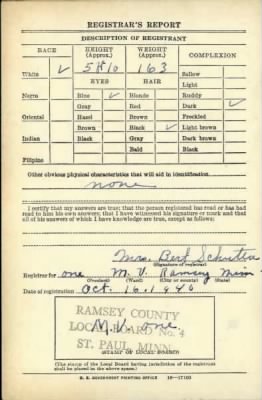 REGISTRAR'S REPORT
DESCRIPTION OF REGISTRANT
RACE HEIGHT (Approx.) WEIGHT (Approx.) COMPLEXION
White ✓ 5 ft 10 163 Sallow
EYES HAIR Light
Negro Blue ✓ Blonde Ruddy
Gray Red Dark ✓
Oriental Hazel Brown Freckled
Brown Black ✓ Light brown
Indian Black Gray Dark brown
Bald Black
Filipino
Other obvious physical characteristics that will aid in identification
none
I certify that my answers are true; that the person registered has read or has
had read to him his own answers; that I have witnessed his signature or mark and that
all of his answers of which I have knowledge are true, except as follows:
Mrs. Bert
(Signature of registrar)
Registrar for one M. V. Ramsey Minn
(Precinct) (Ward) (City or county) (State)
Date of registration Oct. 16. 1940
RAMSEY COUNTY
LOCAL BOARD No. 4
ST. PAUL, MINN.
(STAMP OF LOCAL BOARD)
(The stamp of the Local Board having jurisdiction of the registrant
shall be placed in the above space.)
U. S. GOVERNMENT PRINTING OFFICE 16—17105